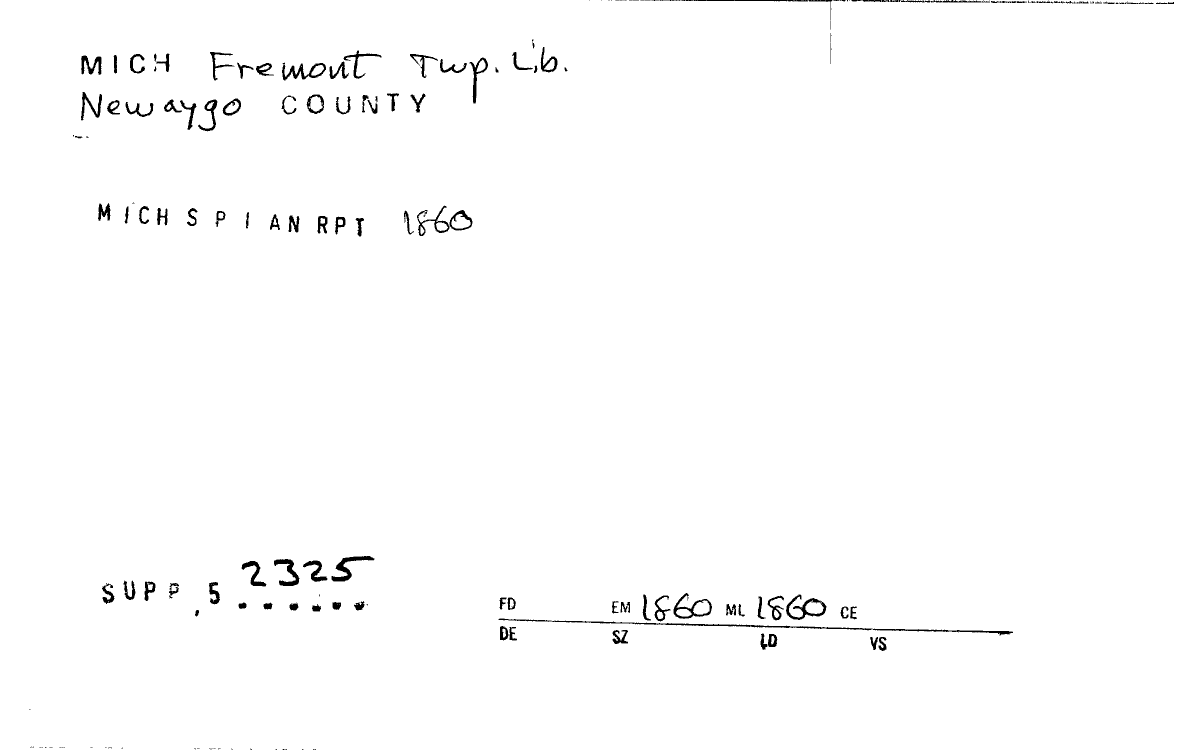 MICH Fremont Twp. Lib.
Newaygo COUNTY
MICH S P I AN RPT 1860
SUPP, 5 2325
FD EM 1860 ML 1860 CE
DE SZ LD VS